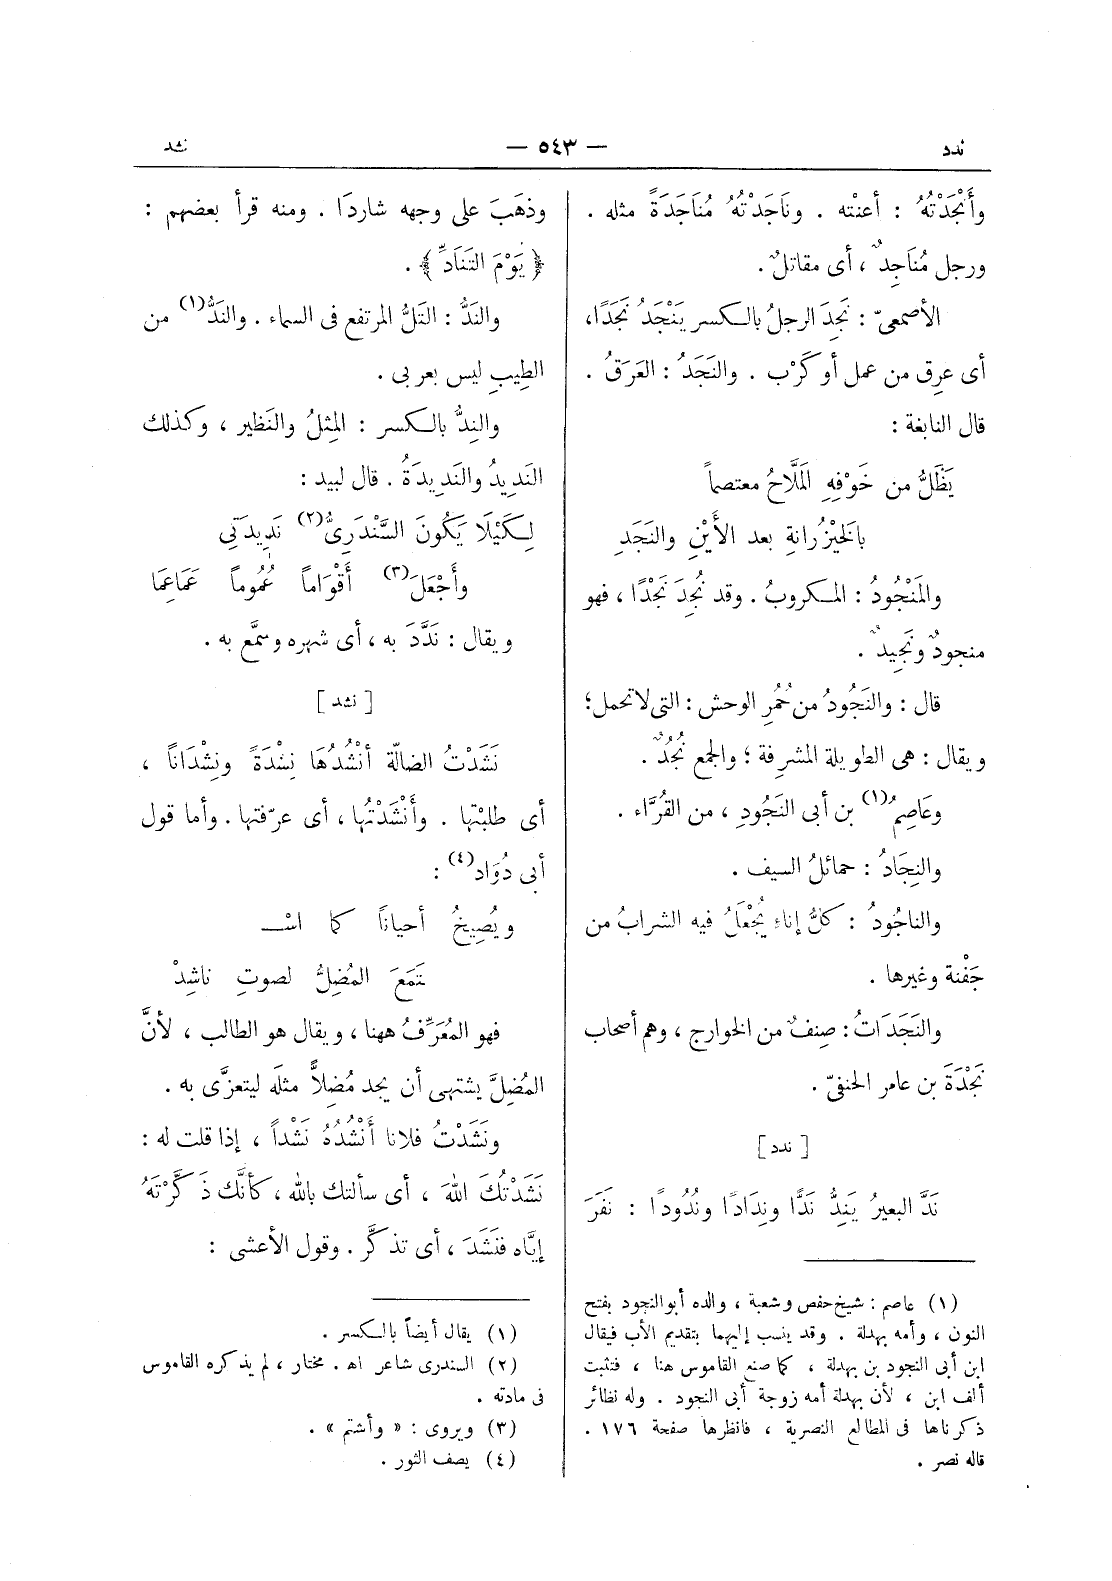 ندد — ٥٤٣ — نشد
وأَنْجَدْتُهُ : أعنْته . ونَاجَدْتُهُ مُنَاجَدَةً مثله .
ورجل مُنَاجِدٌ ، أى مقاتلٌ .
الأصمعىّ : نَجِدَ الرجلُ بالكسر يَنْجَدُ نَجَدًا ،
أى عرِق من عمل أو كَرْب . والنَجَدُ : العَرَقُ .
قال النابغة :
يَظَلُّ من خَوْفِهِ المَلَّاحُ معتصماً
بالخَيْزُرانةِ بعد الأَيْنِ والنَجَدِ
والمَنْجُودُ : المكروبُ . وقد نُجِدَ نَجْدًا ، فهو
منجودٌ ونَجِيدٌ .
قال : والنَجُودُ من حُمُرِ الوحش : التى لا تحمل ؛
ويقال : هى الطويلة المشرِفة ؛ والجمع نُجُدٌ .
وعَاصِمُ (١) بن أبى النَجُودِ ، من القُرَّاء .
والنِجَادُ : حمائلُ السيف .
والناجُودُ : كلُّ إناءٍ يُجْعَلُ فيه الشرابُ من
جَفْنة وغيرها .
والنَجَدَاتُ : صِنفٌ من الخوارج ، وهم أصحاب
نَجْدَةَ بن عامر الحنفىّ .
[ ندد ]
نَدَّ البعيرُ يَنِدُّ نَدًّا ونِدَادًا ونُدُودًا : نَفَرَ
(١) عاصم : شيخ حفص وشعبة ، والده أبو النجود بفتح
النون ، وأمه بهدلة . وقد ينسب إليهما بتقديم الأب فيقال
ابن أبى النجود بن بهدلة ، كما صنع القاموس هنا ، فتثبت
ألف ابن ، لأن بهدلة أمه زوجة أبى النجود . وله نظائر
ذكرناها فى المطالع النصرية ، فانظرها صفحة ١٧٦ .
قاله نصر .
وذهَبَ على وجهه شاردَا . ومنه قرأ بعضهم :
﴿ يَوْمَ التَنَادِّ ﴾ .
والنَدُّ : التَلُّ المرتفع فى السماء . والنَدُّ (١) من
الطِيبِ ليس بعربى .
والنِدُّ بالكسر : المِثلُ والنَظير ، وكذلك
النَدِيدُ والنَدِيدَةُ . قال لبيد :
لِكَيْلَا يَكُونَ السَّنْدَرِىُّ (٢) نَدِيدَتِى
وأَجْعَلَ (٣) أَقْوَاماً عُمُوماً عَمَاعِمَا
ويقال : نَدَّدَ به ، أى شهره وسمَّع به .
[ نشد ]
نَشَدْتُ الضالّة أَنْشُدُهَا نِشْدَةً ونِشْدَاناً ،
أى طلبْتها . وأَنْشَدْتُها ، أى عرّفتها . وأما قول
أبى دُوَاد (٤) :
ويُصِيخُ أحياناً كما اسْـ
ـتَمَعَ المُضِلُّ لصوتِ ناشِدْ
فهو المُعَرِّفُ ههنا ، ويقال هو الطالب ، لأنَّ
المُضِلَّ يشتهى أن يجد مُضِلاًّ مثلَه ليتعزَّى به .
ونَشَدْتُ فلانا أَنْشُدُهُ نَشْداً ، إذا قلت له :
نَشَدْتُكَ اللهَ ، أى سألتك بالله ، كأنَّك ذَكَّرْتَهُ
إيَّاه فنَشَدَ ، أى تذكَّر . وقول الأعشى :
(١) يقال أيضاً بالكسر .
(٢) السندرى شاعر اهـ . مختار ، لم يذكره القاموس
فى مادته .
(٣) ويروى : « وأشتم » .
(٤) يصف الثور .